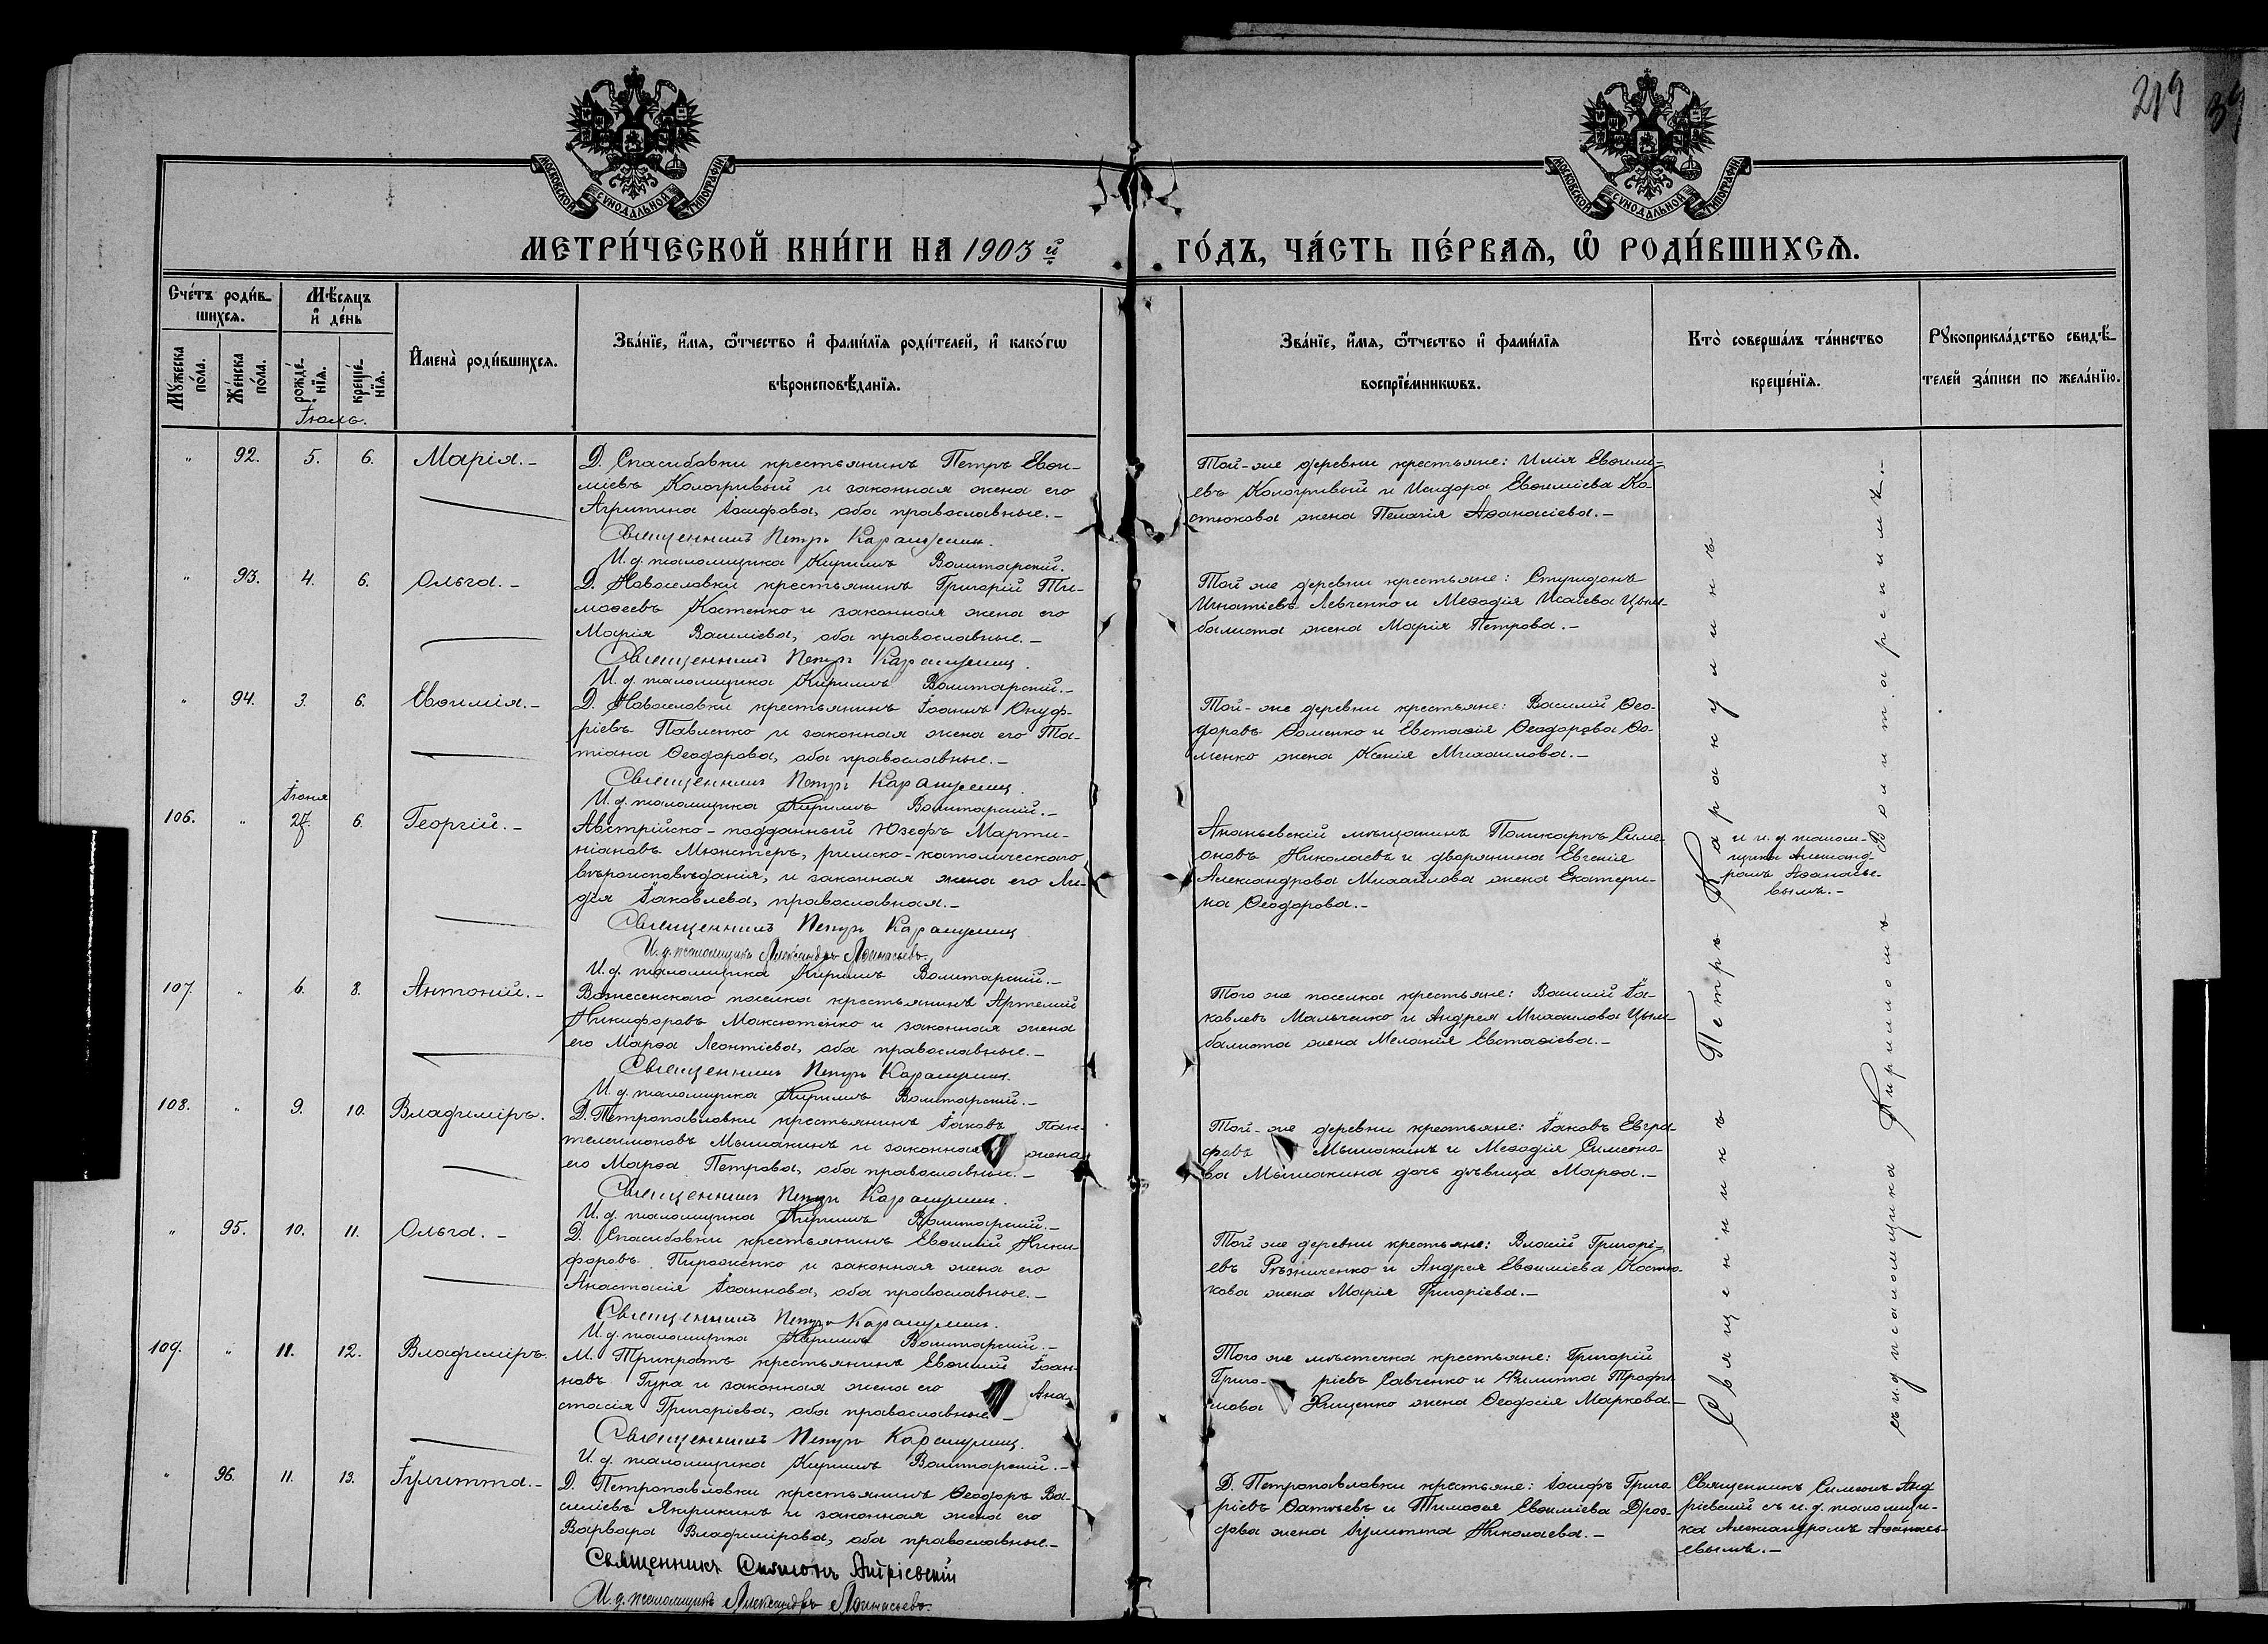 219
39
МОСКОВСКОЙ СѴНОДАЛЬНОЙ ТИПОГРАФІИ
МОСКОВСКОЙ СѴНОДАЛЬНОЙ ТИПОГРАФІИ
МЕТРИ́ЧЕСКОЙ КНИ́ГИ НА 1903 й
ГО́ДЪ, ЧА́СТЬ ПЕ́РВАѦ, Ѽ РОДИ́ВШИХСѦ.
Сче́тъ роди́в-
шихсѧ.
Мѣ́сѧцъ
и҆ де́нь
Мꙋ́жеска
по́ла.
Же́нска
по́ла.
рожде́-
нїѧ.
креще́-
нїѧ.
И҆мена̀ роди́вшихсѧ.
Зва́нїе, и҆́мѧ, ѻ҆́тчество и҆ фами́лїѧ роди́телей, и҆ како́гѡ
вѣроисповѣ́данїѧ.
Зва́нїе, и҆́мѧ, ѻ҆́тчество и҆ фами́лїѧ
воспрїе́мникѡвъ.
Кто̀ соверша́лъ та́инство
креще́нїѧ.
Рꙋкоприкла́дство свидѣ́-
телей за́писи по жела́нїю.
Іюль.
" 92. 5. 6. Марія.-
Д. Спасибовки крестьянинъ Петръ Евѳи-
міевъ Кологривый и законная жена его
Агрипина Іосифова, оба православные.-
Священникъ Петръ Каракулинъ.
И. д. псаломщика Кириллъ Волитарскій.
Той-же деревни крестьяне: Илія Евѳимі-
евъ Кологривый и Исидора Евѳиміева Ко-
стюкова жена Пелагія Аѳанасіева.-
" 93. 4. 6. Ольга.-
Д. Новоселовки крестьянинъ Григорій Ти-
моѳеевъ Костенко и законная жена его
Марія Василіева, оба православные.-
Священникъ Петръ Каракулинъ.
И. д. псаломщика Кириллъ Волитарскій.-
Той же деревни крестьяне: Спиридонъ
Игнатіевъ Левченко и Меѳодія Исаіева Цым-
балиста жена Марія Петрова.-
" 94. 3. 6. Евѳимія.-
Д. Новоселовки крестьянинъ Іоаннъ Онуф-
ріевъ Павленко и законная жена его Та-
тіана Ѳеодорова, оба православные.-
Священникъ Петръ Каракулинъ.
И. д. псаломщика Кириллъ Волитарскій.-
Той-же деревни крестьяне: Василій Ѳео-
доровъ Ѳоменко и Евстаѳія Ѳеодорова Ѳо-
менко жена Ксенія Михаилова.-
Іюня
106. " 27. 6. Георгій.-
Австрійско-подданный Юзефъ Марти-
ніановъ Мюнстеръ, римско-католическаго
вѣроисповѣданія, и законная жена его Ли-
дія Іаковлева, православная.-
Священникъ Петръ Каракулинъ
И. д. псаломщикъ Александръ Аѳанасьевъ.
И. д. псаломщика Кириллъ Волитарскій.-
Ананьевскій мѣщанинъ Поликарпъ Симе-
оновъ Николаевъ и дворянина Евгенія
Александрова Михайлова жена Екатери-
на Ѳеодорова.-
и и. д. псалом-
щика Александ-
ромъ Аѳанасье-
вымъ.-
107. " 6. 8. Антоній.-
Вознесенскаго поселка крестьянинъ Артемій
Никифоровъ Максютенко и законная жена
его Марѳа Леонтіева, оба православные.-
Священникъ Петръ Каракулинъ.
И. д. псаломщика Кириллъ Волитарскій.-
Того же поселка крестьяне: Василій Іа-
ковлевъ Мальченко и Андрея Михаилова Цым-
балиста жена Меланія Евстаѳіева.-
108. " 9. 10. Владиміръ.
Д. Петропавловки крестьянинъ Іаковъ Пан-
телеимоновъ Мышакинъ и законная жена
его Марѳа Петрова, оба православные.-
Священникъ Петръ Каракулинъ.
И. д. псаломщика Кириллъ Волитарскій.-
Той-же деревни крестьяне: Іаковъ Евгра-
фовъ Мышакинъ и Меѳодія Симеоно-
ва Мышакина дочь дѣвица Марѳа.-
" 95. 10. 11. Ольга.-
Д. Спасибовки крестьянинъ Евѳимій Ники-
форовъ Пироженко и законная жена его
Анастасія Іоаннова, оба православные.-
Священникъ Петръ Каракулинъ.
И. д. псаломщика Кириллъ Волитарскій.-
Той же деревни крестьяне: Власій Григорі-
евъ Рѣзниченко и Андрея Евѳиміева Костю-
кова жена Марія Григоріева.-
109. " 11. 12. Владиміръ.
М. Трикратъ крестьянинъ Евѳимій Іоан-
новъ Гура и законная жена его Ана-
стасія Григоріева, оба православные.-
Священникъ Петръ Каракулинъ.
И. д. псаломщика Кириллъ Волитарскій.-
Того же мѣстечка крестьяне: Григорій
Григо- ріевъ Савченко и Филиппа Трофи-
мова Хищенко жена Ѳеодосія Маркова.-
" 96. 11. 13. Іулитта.-
Д. Петропавловки крестьянинъ Ѳеодоръ Ва-
силіевъ Якушкинъ и законная жена его
Варвара Владимірова, оба православные.-
Священникъ Симеонъ Андріевскій
И. д. псаломщикъ Александръ Аѳанасьевъ.
Д. Петропавловки крестьяне: Іосифъ Григо-
ріевъ Ѳатѣевъ и Тимоѳея Евѳиміева Дроз-
дова жена Іулитта Николаева.-
Священникъ Симеонъ Анд
ріевскій съ и. д. псаломщи-
ка Александромъ Аѳанась-
евымъ.-
Священникъ Петръ Каракулинъ
съ и. д. псаломщика Кирилломъ Волитарскимъ.-